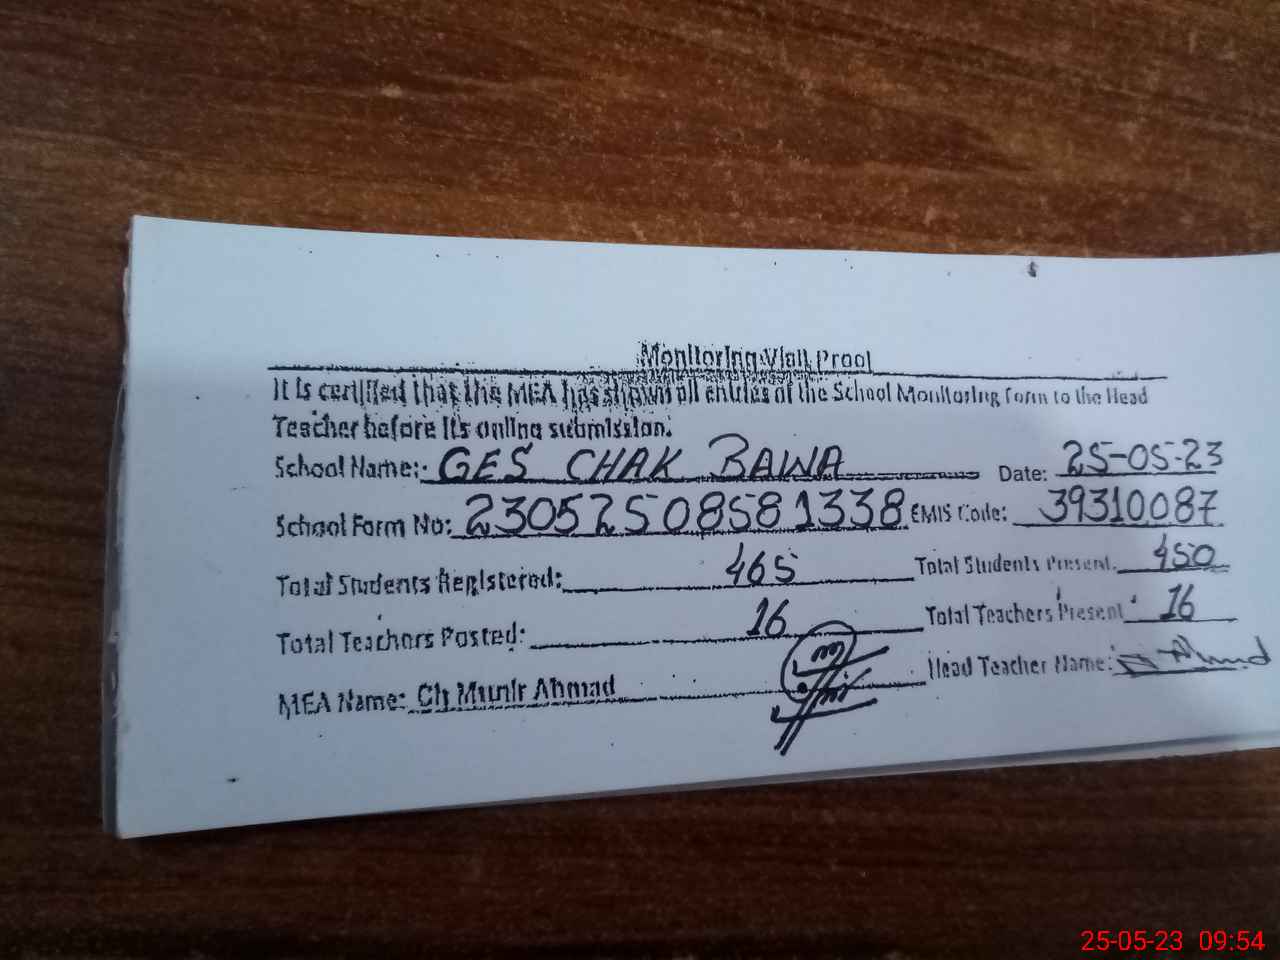 Monitoring Visit Proof
It is certified that the MEA has shown all entries of the School Monitoring form to the Head
Teacher before its online submission.
School Name:- GES CHAK BAWA Date: 25-05-23
School Form No: 23052508581338 EMIS Code: 39310087
Total Students Registered: 465 Total Students Present: 450
Total Teachers Posted: 16 Total Teachers Present: 16
MEA Name: Ch Munir Ahmad Head Teacher Name:
25-05-23 09:54